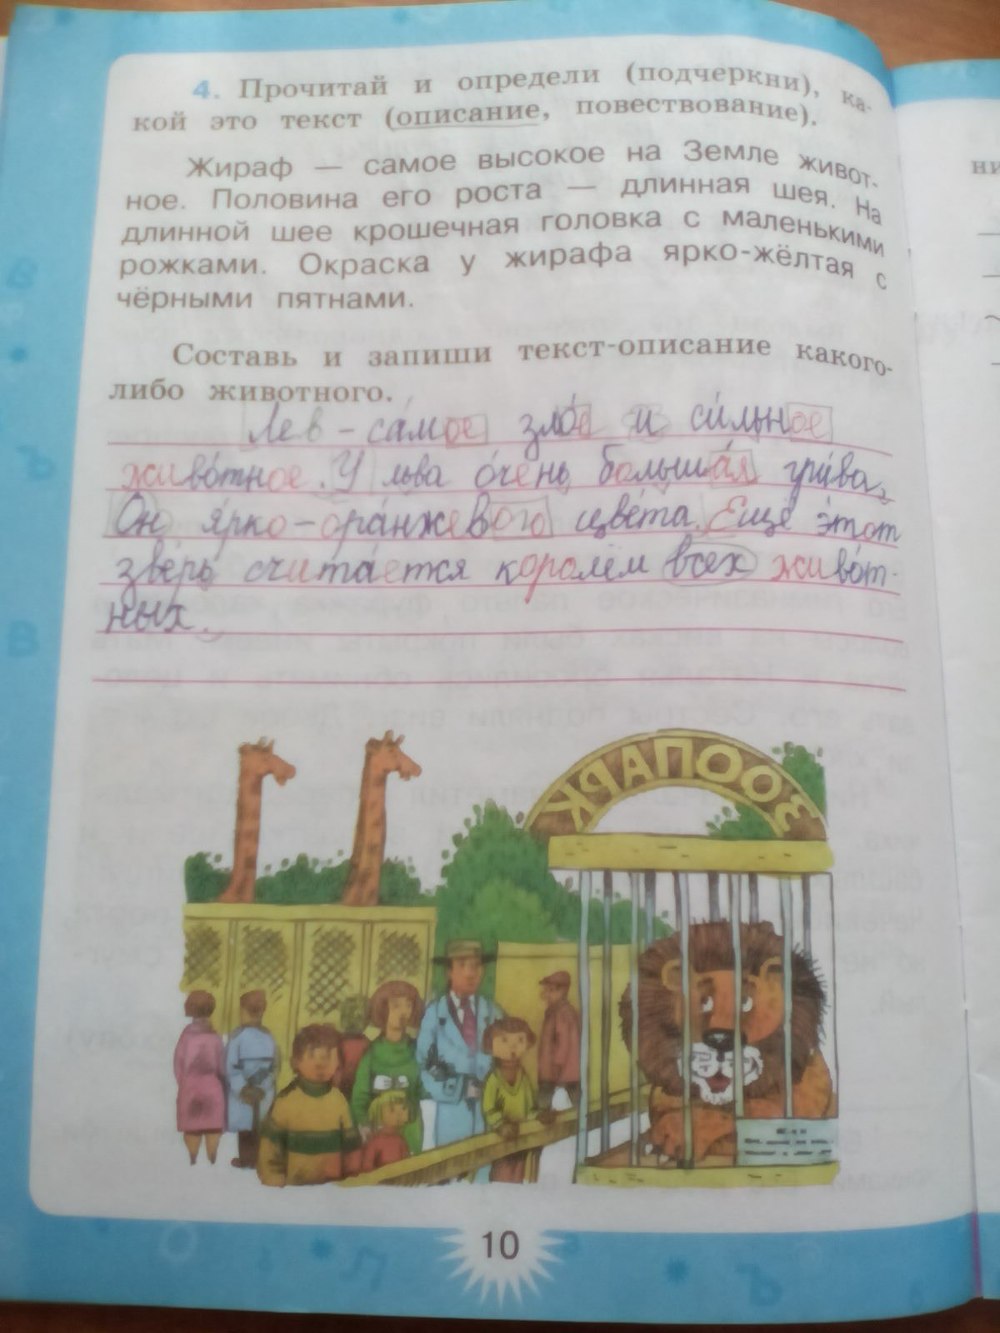 4. Прочитай и определи (подчеркни), ка-
кой это текст (описание, повествование).
Жираф — самое высокое на Земле живот-
ное. Половина его роста — длинная шея. На
длинной шее крошечная головка с маленькими
рожками. Окраска у жирафа ярко-жёлтая с
чёрными пятнами.
Составь и запиши текст-описание какого-
либо животного.
Лев - са́мое зло́е и си́льное
живо́тное. У льва о́чень больша́я гри́ва.
Он я́рко-ора́нжевого цве́та. Ещё э́тот
зверь счита́ется королём всех живо́т-
ных.
ЗООПАРК
10